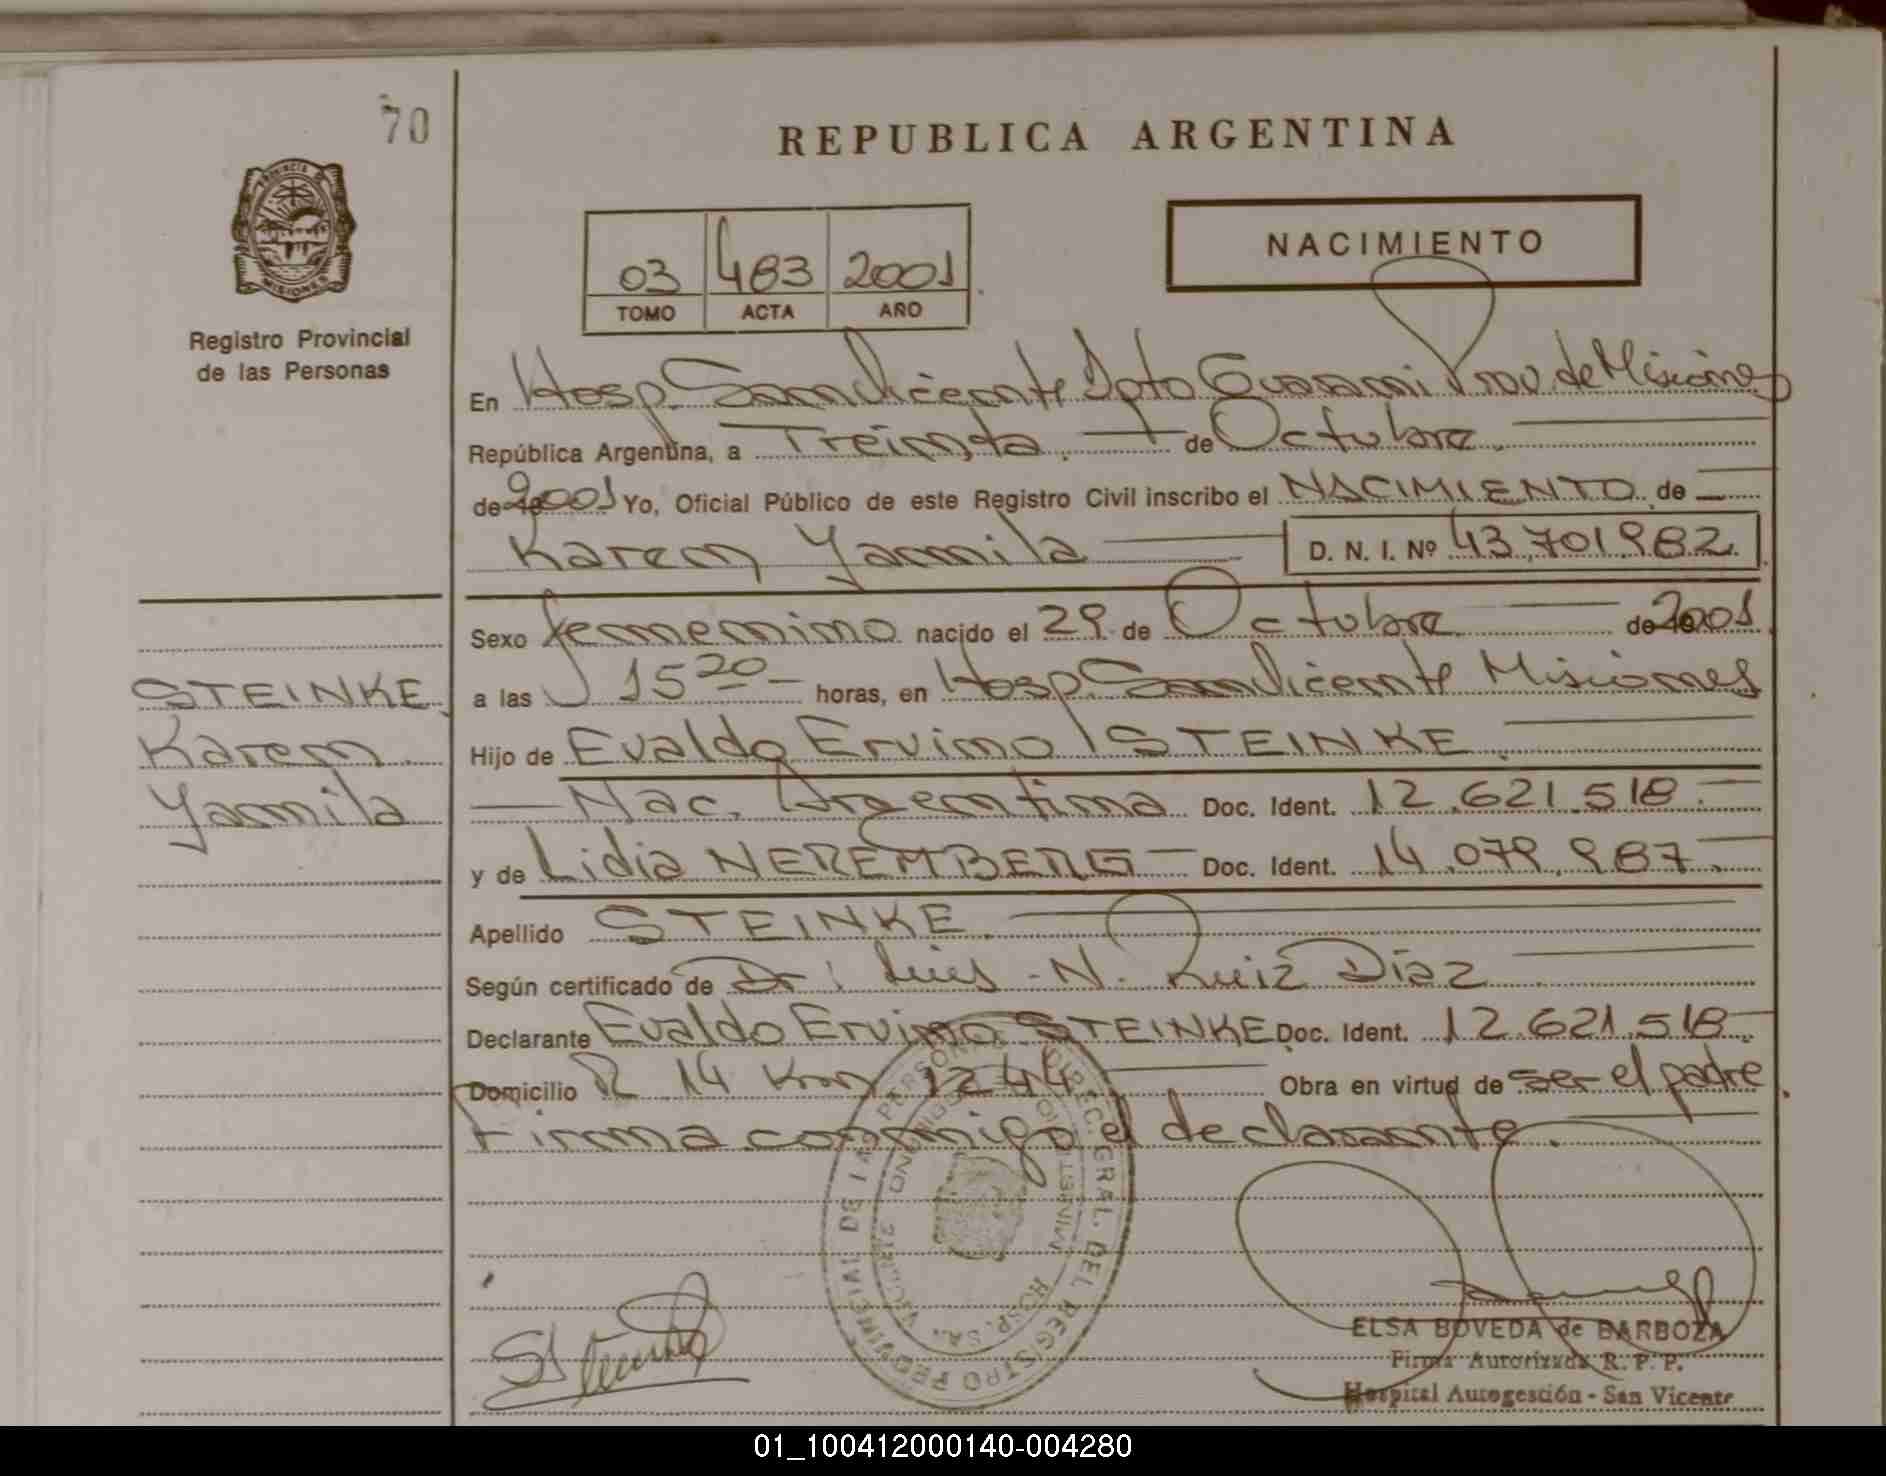 70
REPUBLICA ARGENTINA
PROVINCIA DE
MISIONES
Registro Provincial
de las Personas
03 483 2001
TOMO ACTA AÑO
NACIMIENTO
En Hosp. San Vicente Dpto Guarani Prov. de Misiones
República Argentina, a Treinta de Octubre
de 2001 Yo, Oficial Público de este Registro Civil inscribo el NACIMIENTO de
Karen Yamila D. N. I. Nº 43.701.982
Sexo femenino nacido el 29 de Octubre de 2001
a las 15 20 horas, en Hosp. San Vicente Misiones
Hijo de Evaldo Ervino STEINKE
Nac. Argentina Doc. Ident. 12.621.518
y de Lidia NEREMBERG Doc. Ident. 14.079.987
Apellido STEINKE
Según certificado de Dr: Luis N. Ruiz Díaz
Declarante Evaldo Ervino STEINKE Doc. Ident. 12.621.518
Domicilio R 14 Km 1244 Obra en virtud de ser el padre
Firma conmigo el declarante.
STEINKE
Karen
Yamila
DIREC. GRAL. DEL REGISTRO PROVINCIAL DE LAS PERSONAS
HOSP. SAN VICENTE
ELSA BOVEDA de BARBOZA
Firma Autorizada R. P. P.
Hospital Autogestión - San Vicente
01_100412000140-004280